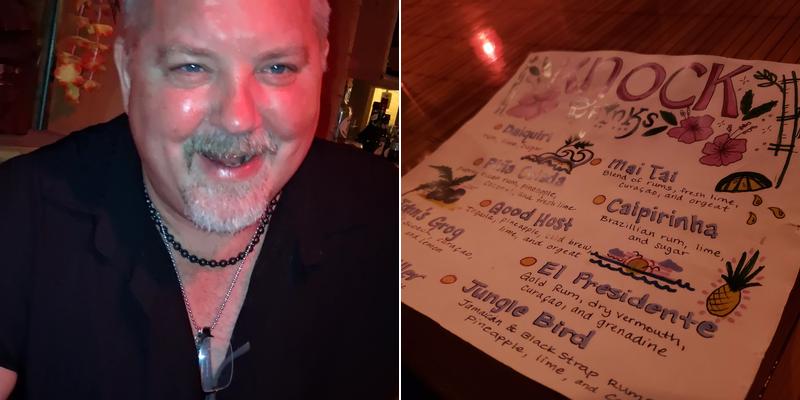 KNOCK
Drinks
Daiquiri
rum, lime, sugar
Piña Colada
rum, pineapple,
coconut, and fresh lime
Sam's Grog
curaçao,
and lemon
Good Host
Tequila, pineapple, cold brew,
lime, and orgeat
Mai Tai
Blend of rums, fresh lime,
curaçao, and orgeat
Caipirinha
Brazillian rum, lime,
and sugar
El Presidente
Gold Rum, dry vermouth,
curaçao, and grenadine
Jungle Bird
Jamaican & Black Strap Rums
pineapple, lime, and